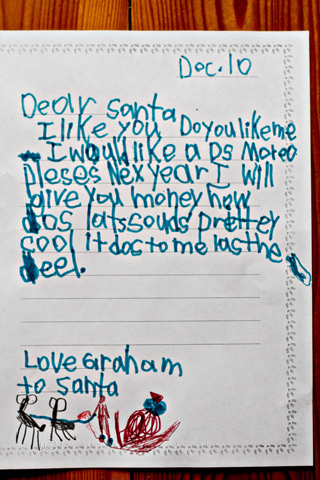 Dec. 10
Dear Santa
I like you Do you like me
I would like a DS Mareo
pleses Nex year I will
give you money how
dos lats souds prettey
cool it dos to me las the
deel.
Love Graham
to Santa